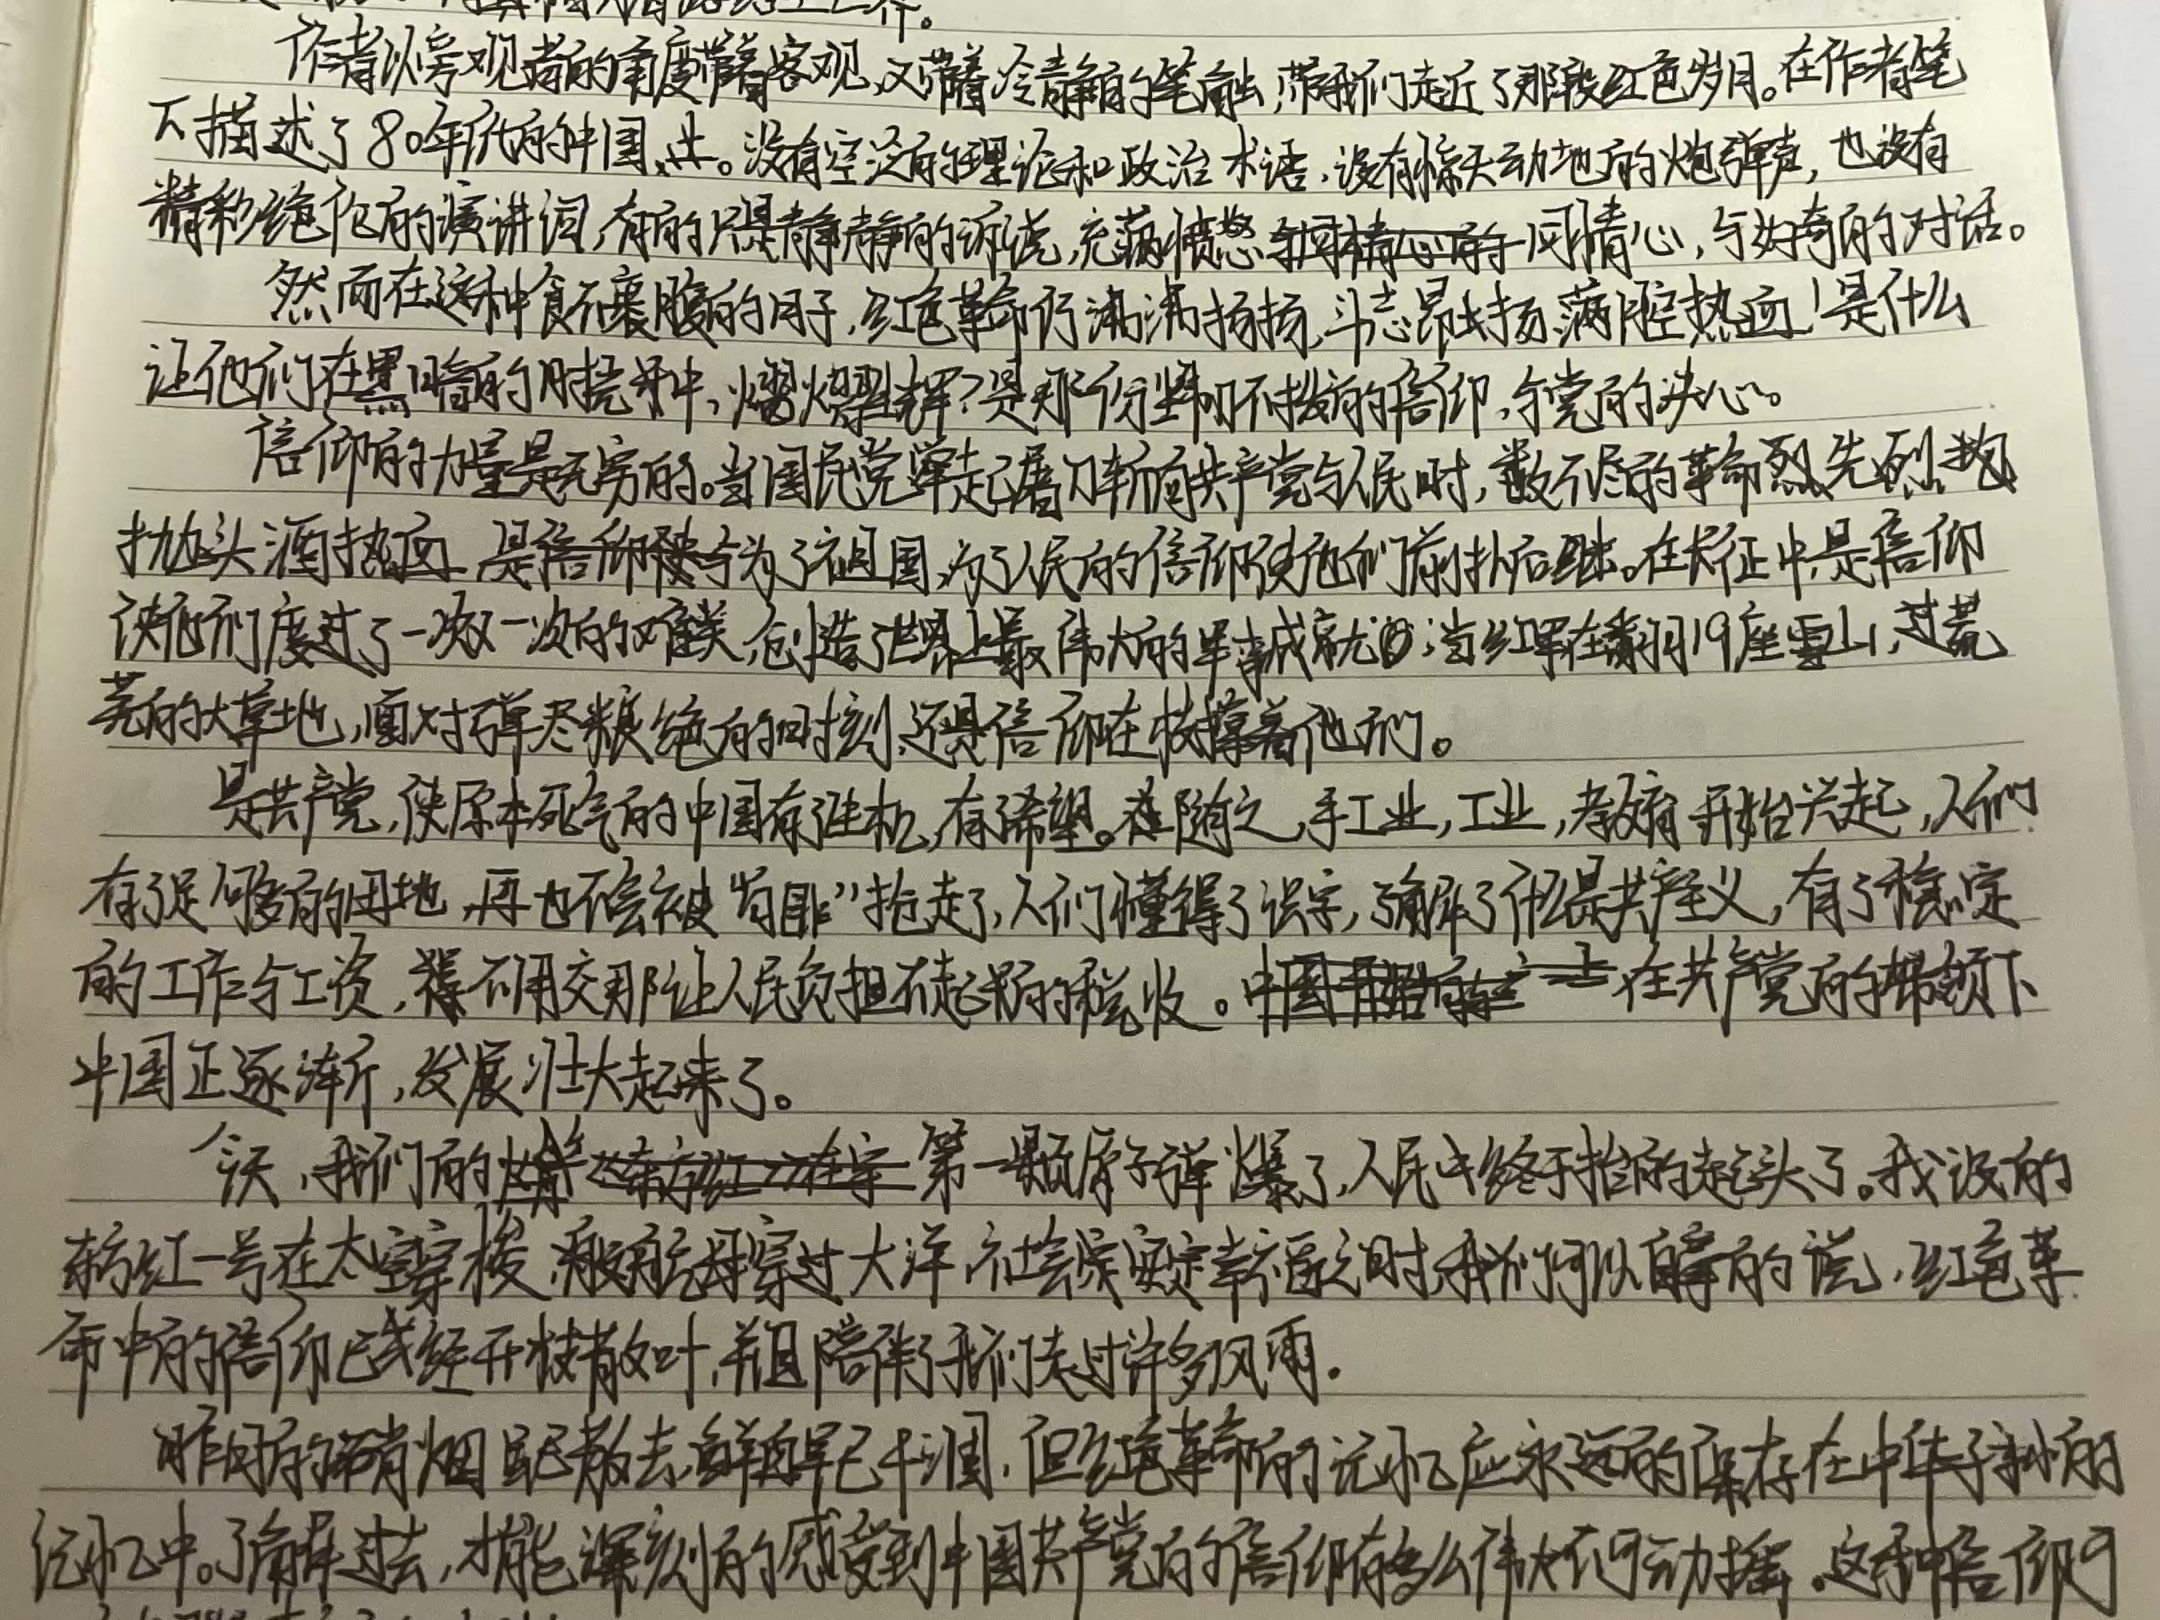 作者以旁观者的角度带着客观，又带着冷静的笔触，带我们走近了那段红色岁月。在作者笔
下描述了80年代的中国共。没有空泛的理论和政治术语，没有惊天动地的炮弹声，也没有
精彩绝伦的演讲词，有的只是静静的诉说，充满愤怒 同情心，与好奇的对话。
然而在这种食不裹腹的日子，红色革命仍沸沸扬扬，斗志昂扬，满腔热血！是什么
让他们在黑暗的日子中，熠熠生辉？是那份坚韧不拔的信仰，与党的决心。
信仰的力量是无穷的。当国民党举起屠刀斩向共产党与人民时，数不尽的革命先烈抛
抛头洒热血，是为了祖国，为了人民的信仰使他们前扑后继。在长征中，是信仰
使他们度过了一次又一次的难关，创造了世界上最伟大的军事成就；当红军在翻阅19座雪山，过荒
芜的大草地，面对弹尽粮绝的时刻，还是信仰在支撑着他们。
是共产党，使原本死气的中国有了生机，有了希望。随之，手工业，工业，教育开始兴起，人们
有了足够的田地，再也不会被“匪”抢走了，人们懂得了识字，了解了什么是共产主义，有了稳定
的工作与工资，不用交那让人民负担不起来的税收。在共产党的带领下
中国正逐渐，发展壮大起来了。
今天，我们的第一颗原子弹爆了，人民中终于抬的起头了。我说的
东方红一号在太空穿梭，航母穿过大洋，社会安定幸福之时，我们可以自豪的说，红色革
命中的信仰已经开枝散叶，并且陪伴了我们走过许多风雨。
昨日的硝烟虽已散去，鲜血早已干涸，但红色革命的记忆应永远的保存在中华子孙的
记忆中。了解过去，才能深刻的感受到中国共产党的信仰有多么伟大不可动摇。这种信仰可